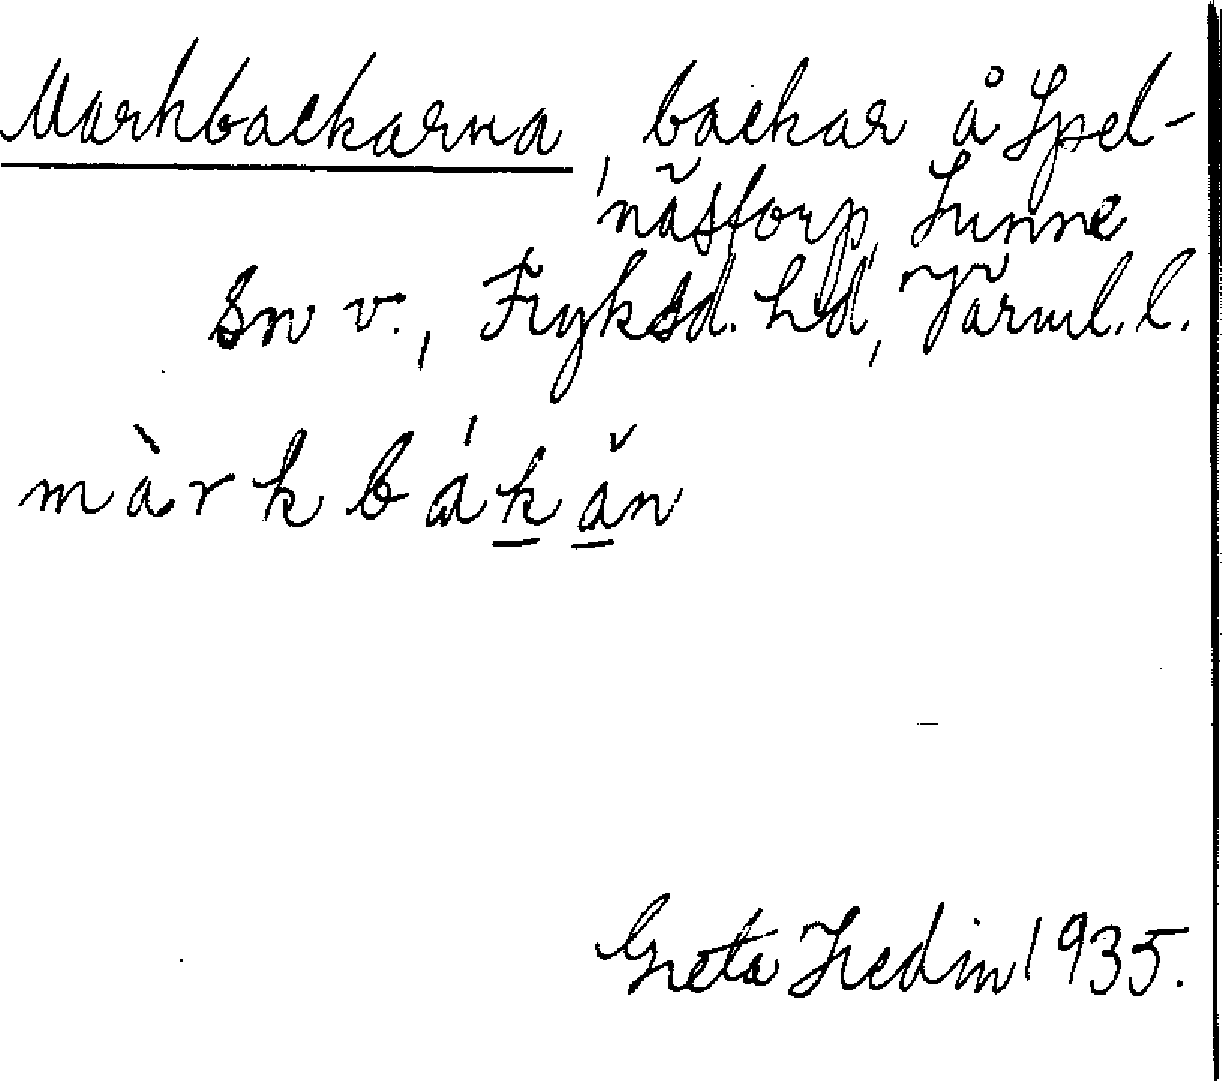 Markbackarna, backar å Spel-
näs torp, Sunne
Sn v., Fryksd. hd, Värml. l.
màrkbákǎn
Greta Hedin 1935.